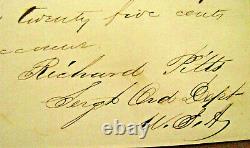 twenty five cents
account.
Richard Pitts
Sergt Ord Dept
U.S.A.